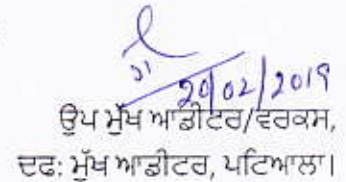 20/02/2019
ਉਪ ਮੁੱਖ ਆਡੀਟਰ/ਵਰਕਸ,
ਦਫ: ਮੁੱਖ ਆਡੀਟਰ, ਪਟਿਆਲਾ।